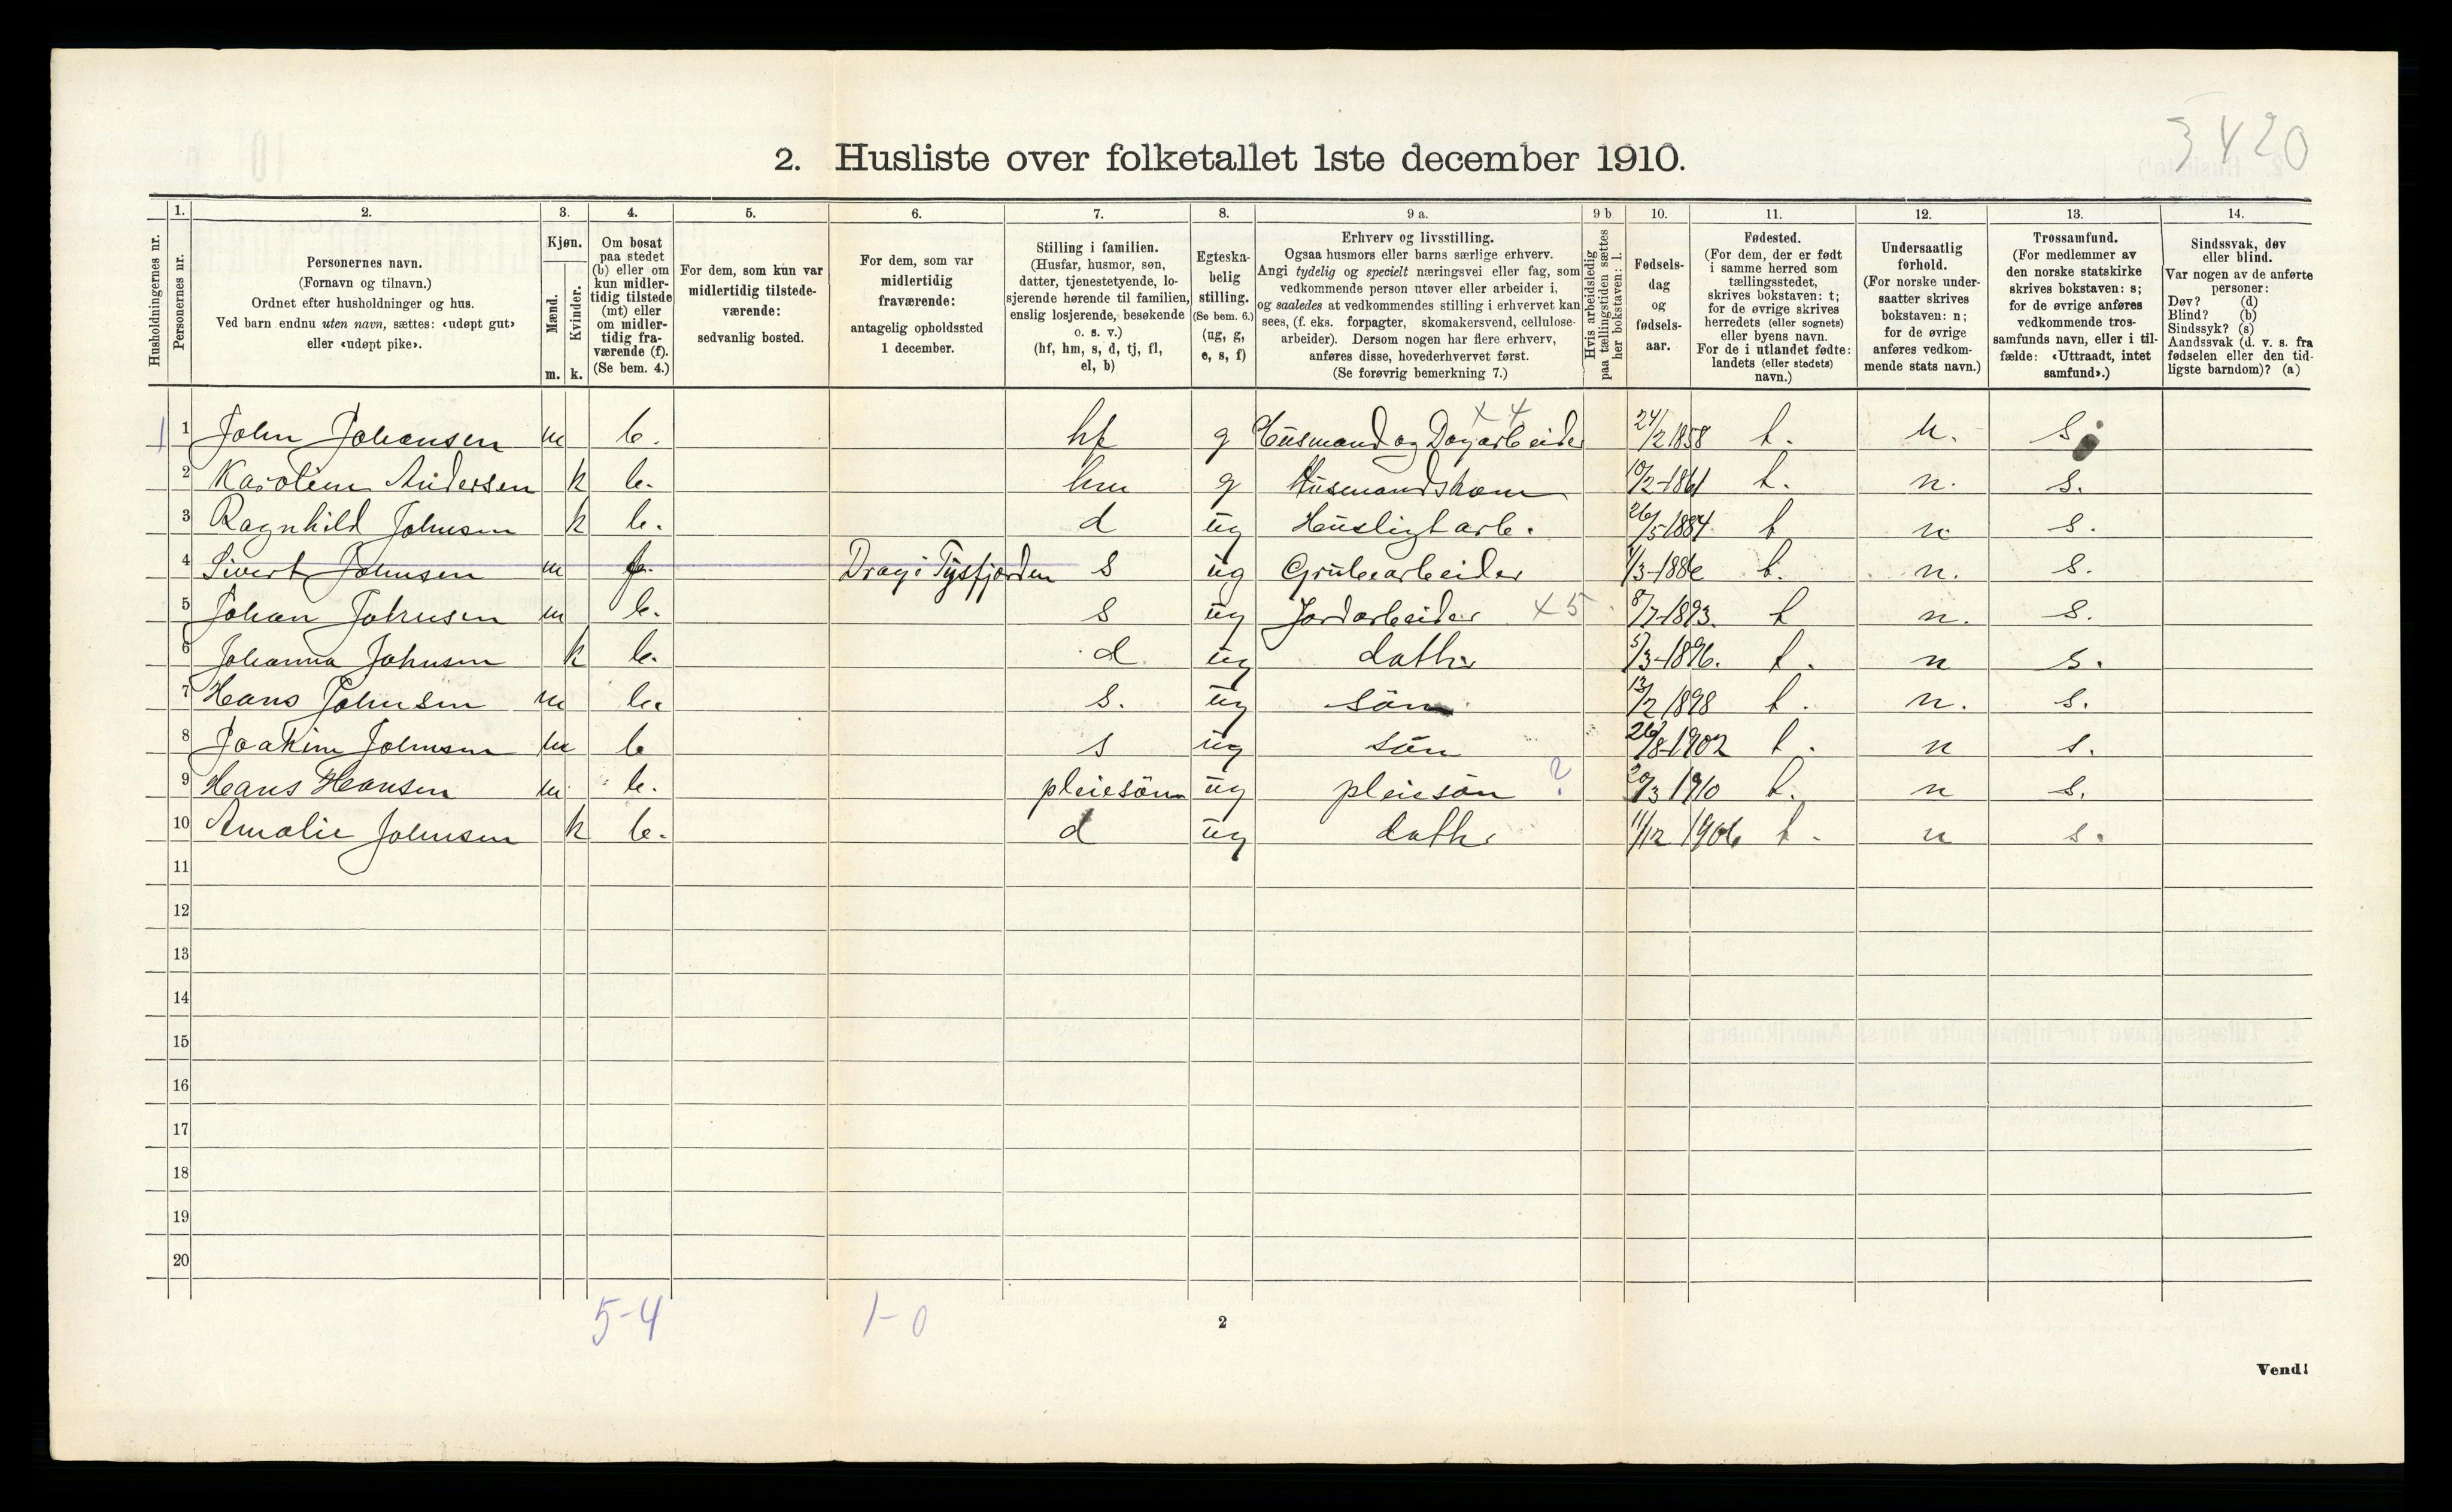 3420
2. Husliste over folketallet 1ste december 1910.
Husholdningernes nr.
1.
Personernes nr.
2.
Personernes navn.
(Fornavn og tilnavn.)
Ordnet efter husholdninger og hus.
Ved barn endnu uten navn, sættes: «udøpt gut»
eller «udøpt pike».
3.
Kjøn.
Mænd.
Kvinder.
m. k.
4.
Om bosat
paa stedet
(b) eller om
kun midler-
tidig tilstede
(mt) eller
om midler-
tidig fra-
værende (f).
(Se bem. 4.)
5.
For dem, som kun var
midlertidig tilstede-
værende:
sedvanlig bosted.
6.
For dem, som var
midlertidig
fraværende:
antagelig opholdssted
1 december.
7.
Stilling i familien.
(Husfar, husmor, søn,
datter, tjenestetyende, lo-
sjerende hørende til familien,
enslig losjerende, besøkende
o. s. v.)
(hf, hm, s, d, tj, fl,
el, b)
8.
Egteska-
belig
stilling.
(Se bem. 6.)
(ug, g,
e, s, f)
9 a.
Erhverv og livsstilling.
Ogsaa husmors eller barns særlige erhverv.
Angi tydelig og specielt næringsvei eller fag, som
vedkommende person utøver eller arbeider i,
og saaledes at vedkommendes stilling i erhvervet kan
sees, (f. eks. forpagter, skomakersvend, cellulose-
arbeider). Dersom nogen har flere erhverv,
anføres disse, hovederhvervet først.
(Se forøvrig bemerkning 7.)
9 b
Hvis arbeidsledig
paa tællingstiden sættes
her bokstaven: l.
10.
Fødsels-
dag
og
fødsels-
aar.
11.
Fødested.
(For dem, der er født
i samme herred som
tællingsstedet,
skrives bokstaven: t;
for de øvrige skrives
herredets (eller sognets)
eller byens navn.
For de i utlandet fødte:
landets (eller stedets)
navn.)
12.
Undersaatlig
forhold.
(For norske under-
saatter skrives
bokstaven: n;
for de øvrige
anføres vedkom-
mende stats navn.)
13.
Trossamfund.
(For medlemmer av
den norske statskirke
skrives bokstaven: s;
for de øvrige anføres
vedkommende tros-
samfunds navn, eller i til-
fælde: «Uttraadt, intet
samfund».)
14.
Sindssvak, døv
eller blind.
Var nogen av de anførte
personer:
Døv? (d)
Blind? (b)
Sindssyk? (s)
Aandssvak (d. v. s. fra
fødselen eller den tid-
ligste barndom)? (a)
x 4
1 1 John Johansen m b. hf g Husmand og Dagarbeider 24/2 1858 t. n. s.
2 Karoline Andersen k b. hm g Husmandskone 10/2-1861 t. n. s.
3 Ragnhild Johnsen k b. d ug Husligt arb. 26/5-1884 t n s.
4 Sivert Johnsen m f. Drag i Tysfjorden s ug Grubearbeider /3-1886 t. n. s.
5 Johan Johnsen m b. s ug Jordarbeider x 5 8/7-1893. t n. s.
6 Johanna Johnsen k b. d ug dath. 5/3-1896. t. n s.
7 Hans Johnsen m b. s. ug sön 13/2 1898 t. n. s.
8 Joakim Johnsen m b s ug sön 26/8-1902 t. n s.
9 Hans Hansen m b. pleiesön ug pleiesön ? 20/3 1910 t. n s.
10 Amalie Johnsen k b. d ug dath. 11/12 1906 t. n s.
11
12
13
14
15
16
17
18
19
20
5-4 1-0
2
Vend!